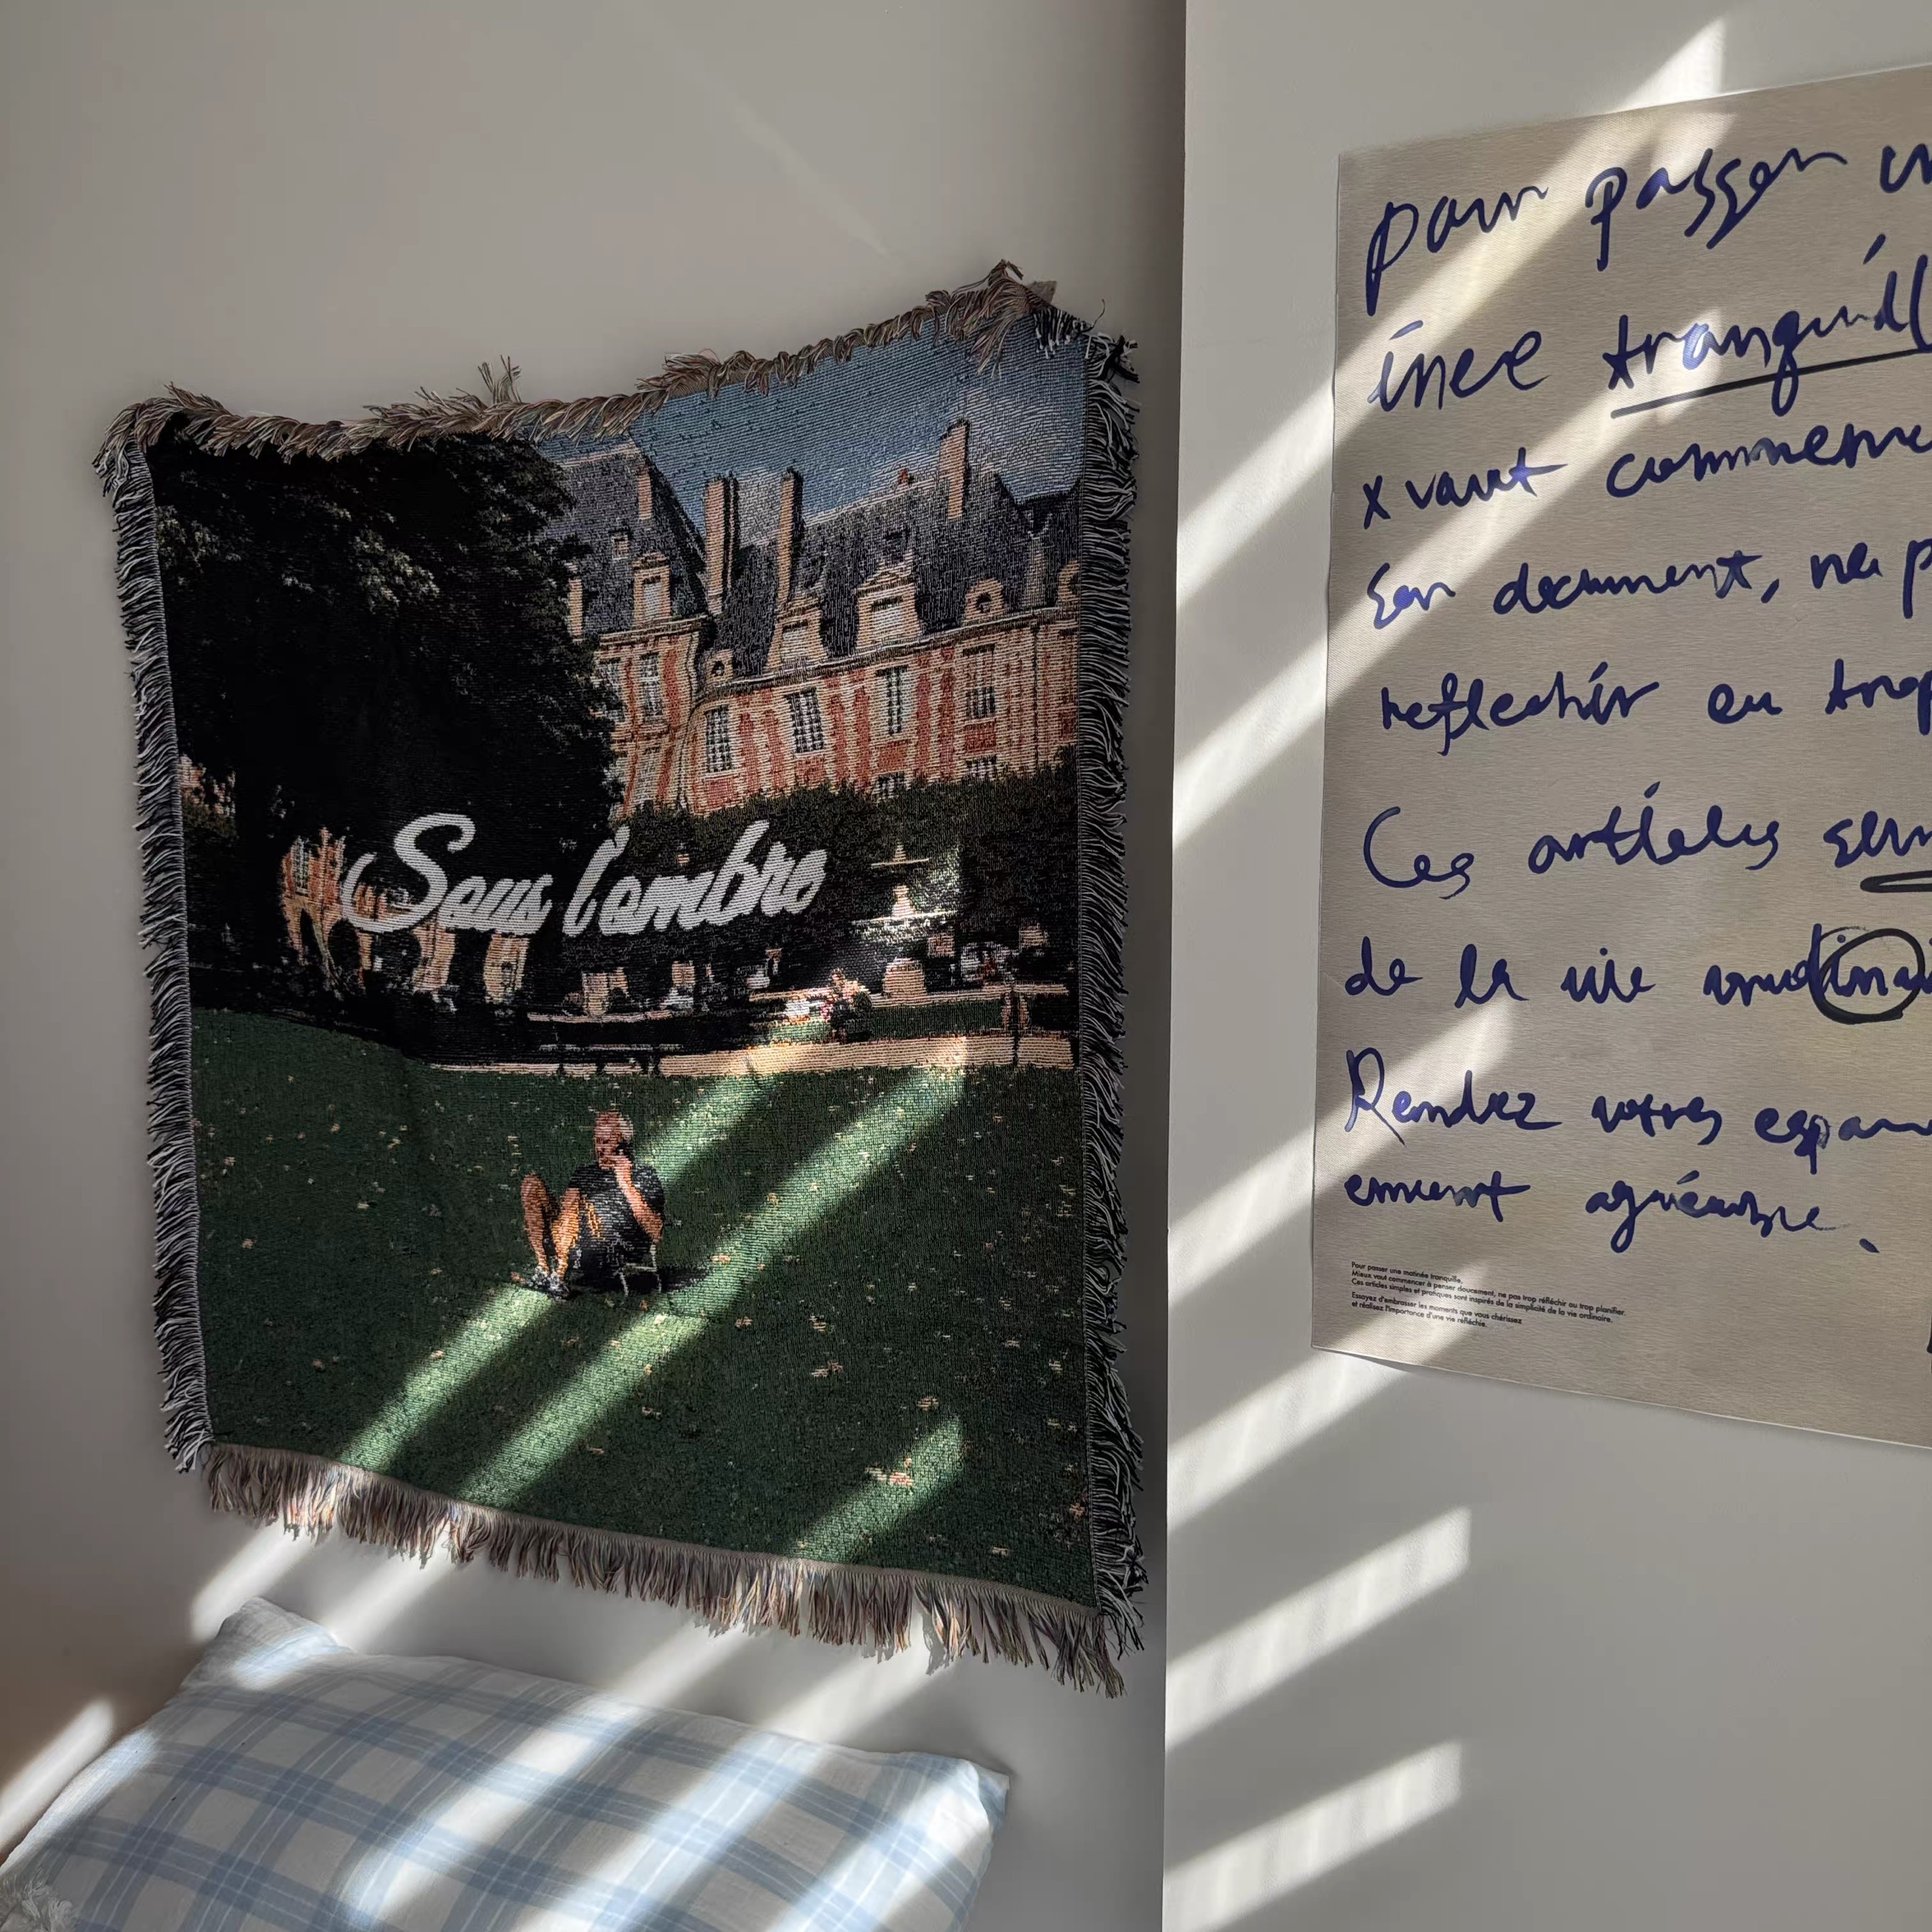 Sous l'ombre
pour passer un
inée tranquill
x vaut commenc
ser doucement, ne p
reflechir ou trop
Ces articles sim
de la vie ordinai
Rendez votres espa
ement agréable.
Pour passer une matinée tranquille.
Mieux vaut commencer à penser doucement, ne pas trop réfléchir ou trop planifier.
Ces articles simples et pratiques sont inspirés de la simplicité de la vie ordinaire.
Essayez d'embrasser les moments que vous chérissez
et réalisez l'importance d'une vie réfléchie.